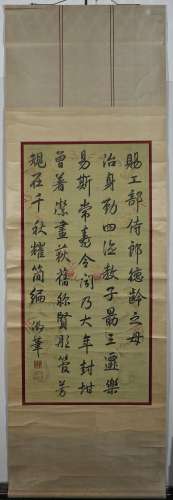 賜工部侍郎德齡之母
治身勤四教子最三遷樂
易斯常令聞乃大年封坩
曾著潔畫荻舊稱賢彤管芳
規在千秋耀簡編 御筆